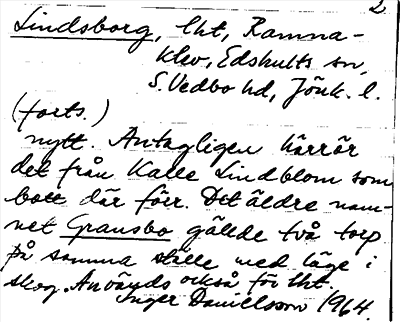 2
Lindsborg, lht, Ramna-
klev, Edshults sn,
S. Vedbo hd, Jönk. l.
(forts.)
nytt. Antagligen härrör
det från Kalle Lindblom som
bott där förr. Det äldre nam-
net Gransbo gällde två torp
på samma ställe med läge i
skog. Används också för lht.
Inger Danielsson 1964.